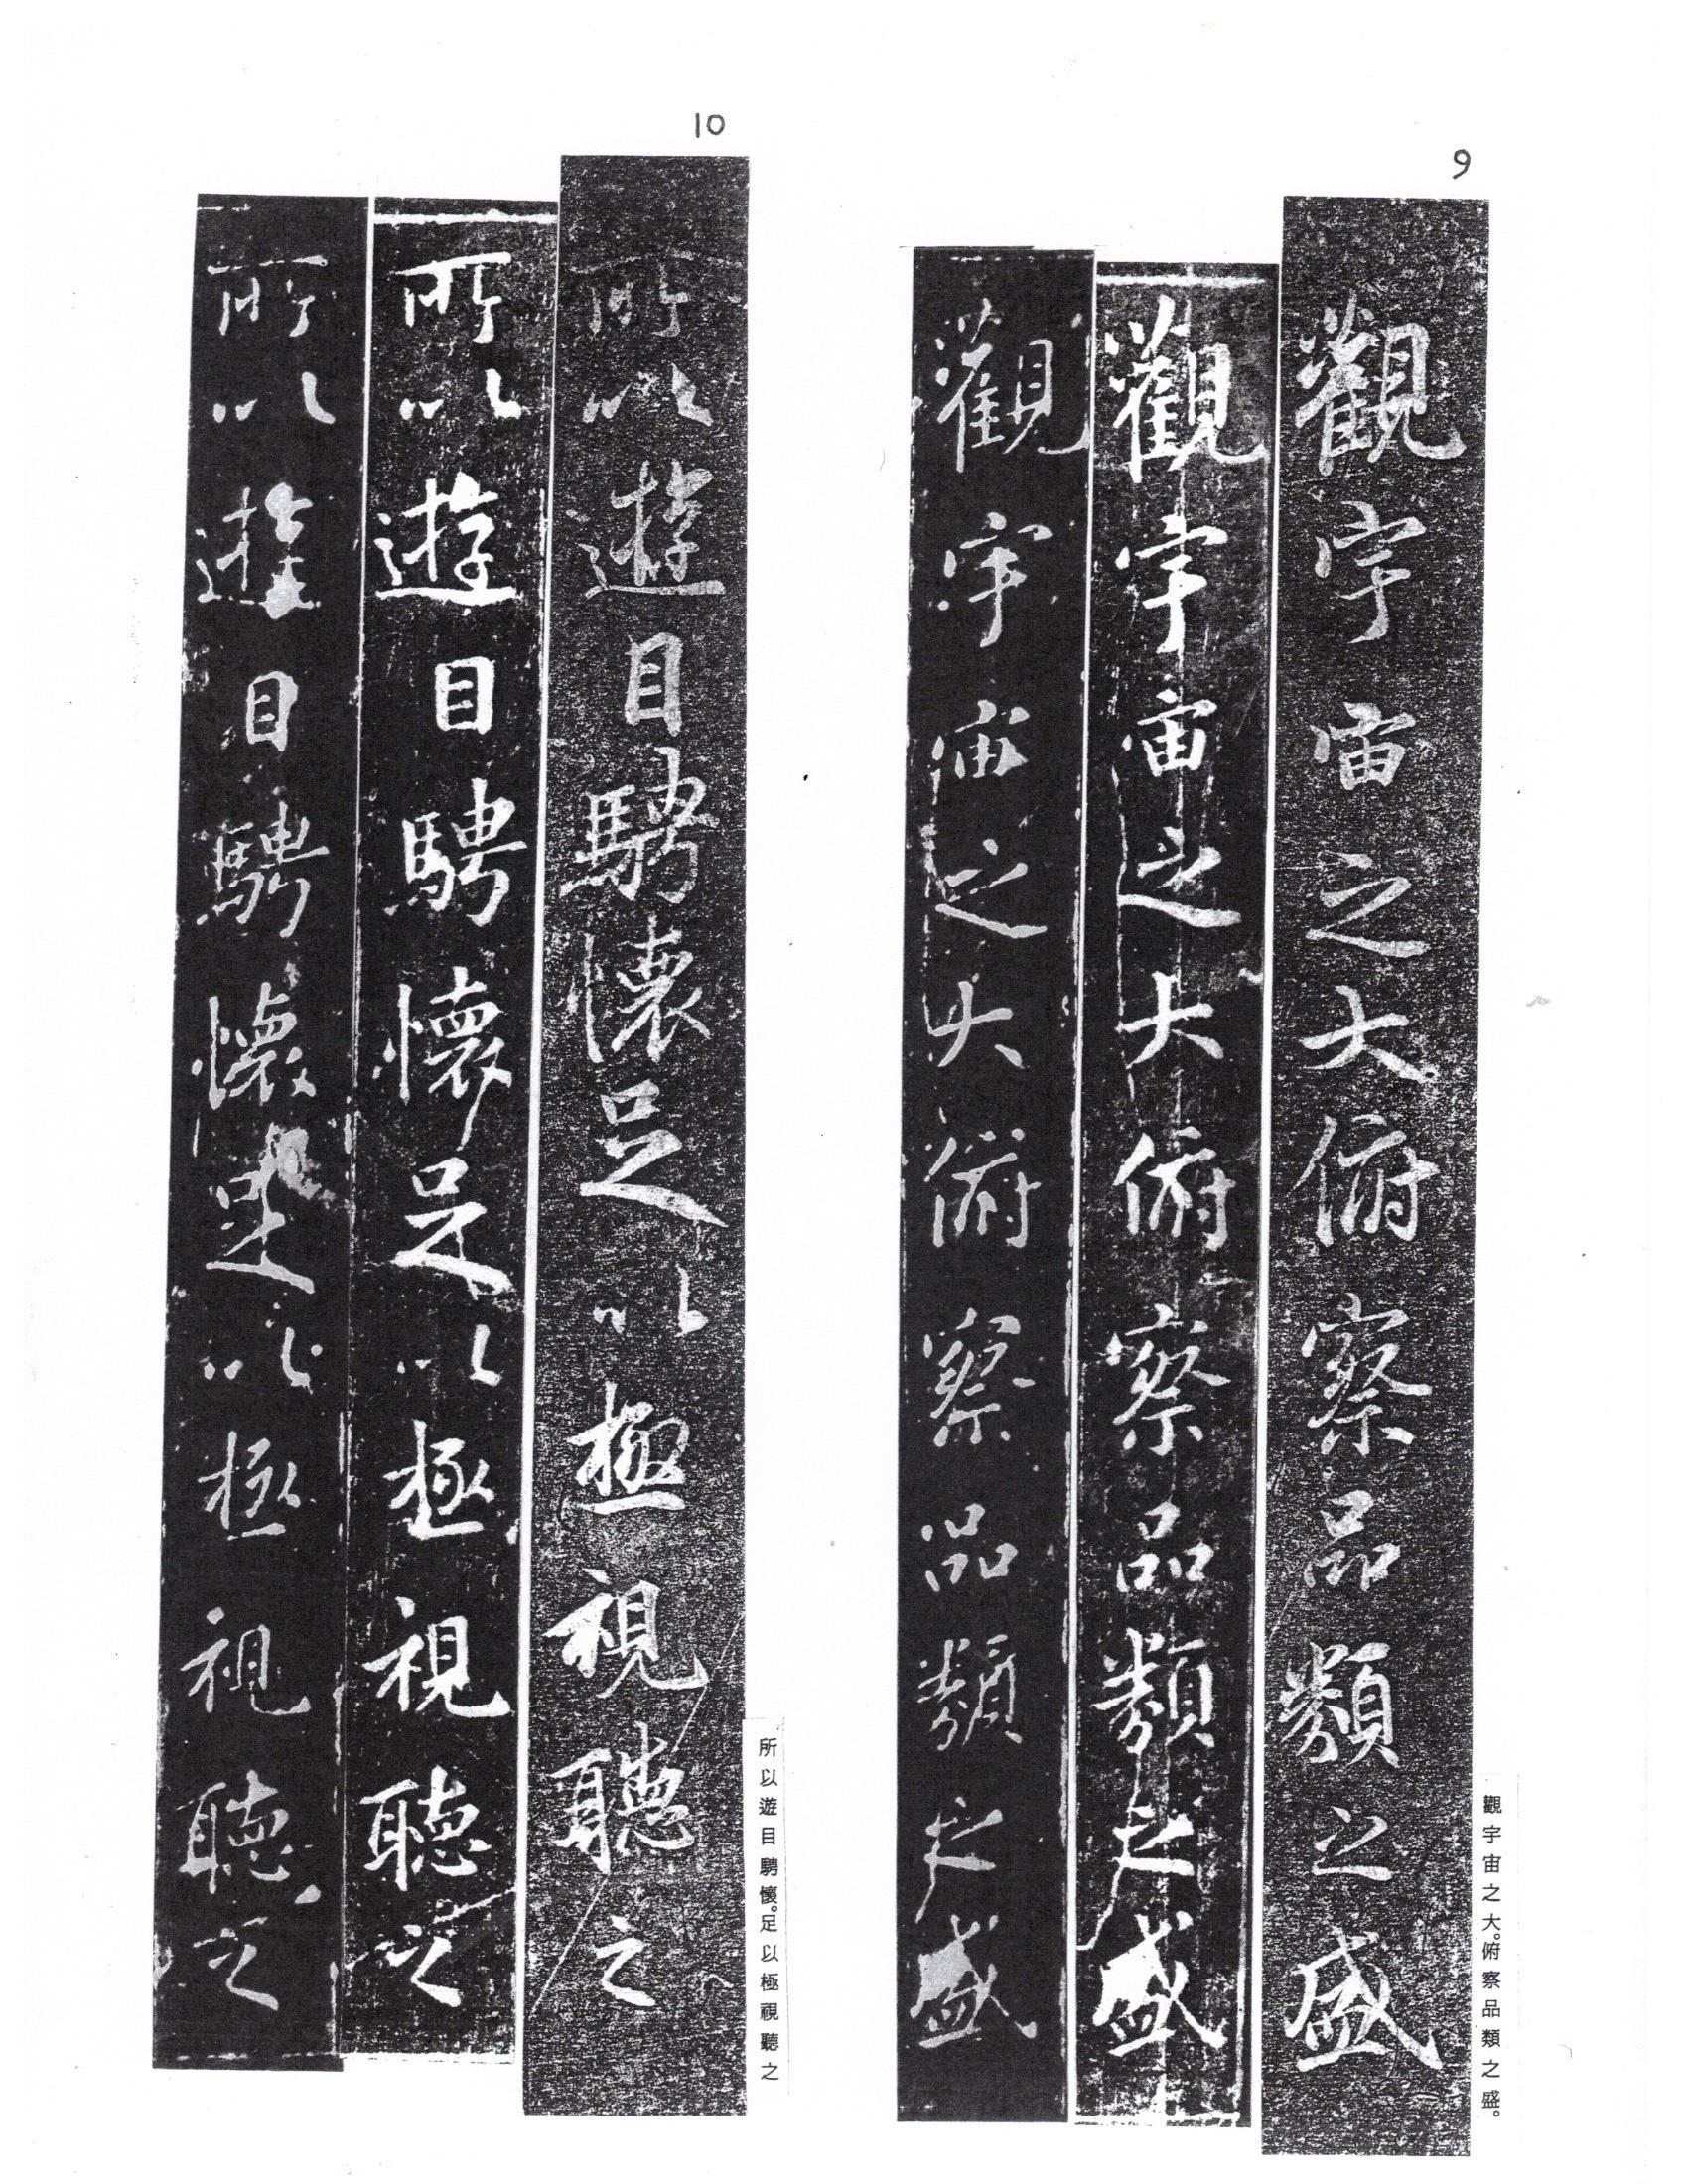 9
觀宇宙之大俯察品類之盛
觀宇宙之大俯察品類之盛
觀宇宙之大俯察品類之盛
觀宇宙之大。俯察品類之盛。
10
所以遊目騁懷足以極視聽之
所以遊目騁懷足以極視聽之
所以遊目騁懷足以極視聽之
所以遊目騁懷。足以極視聽之